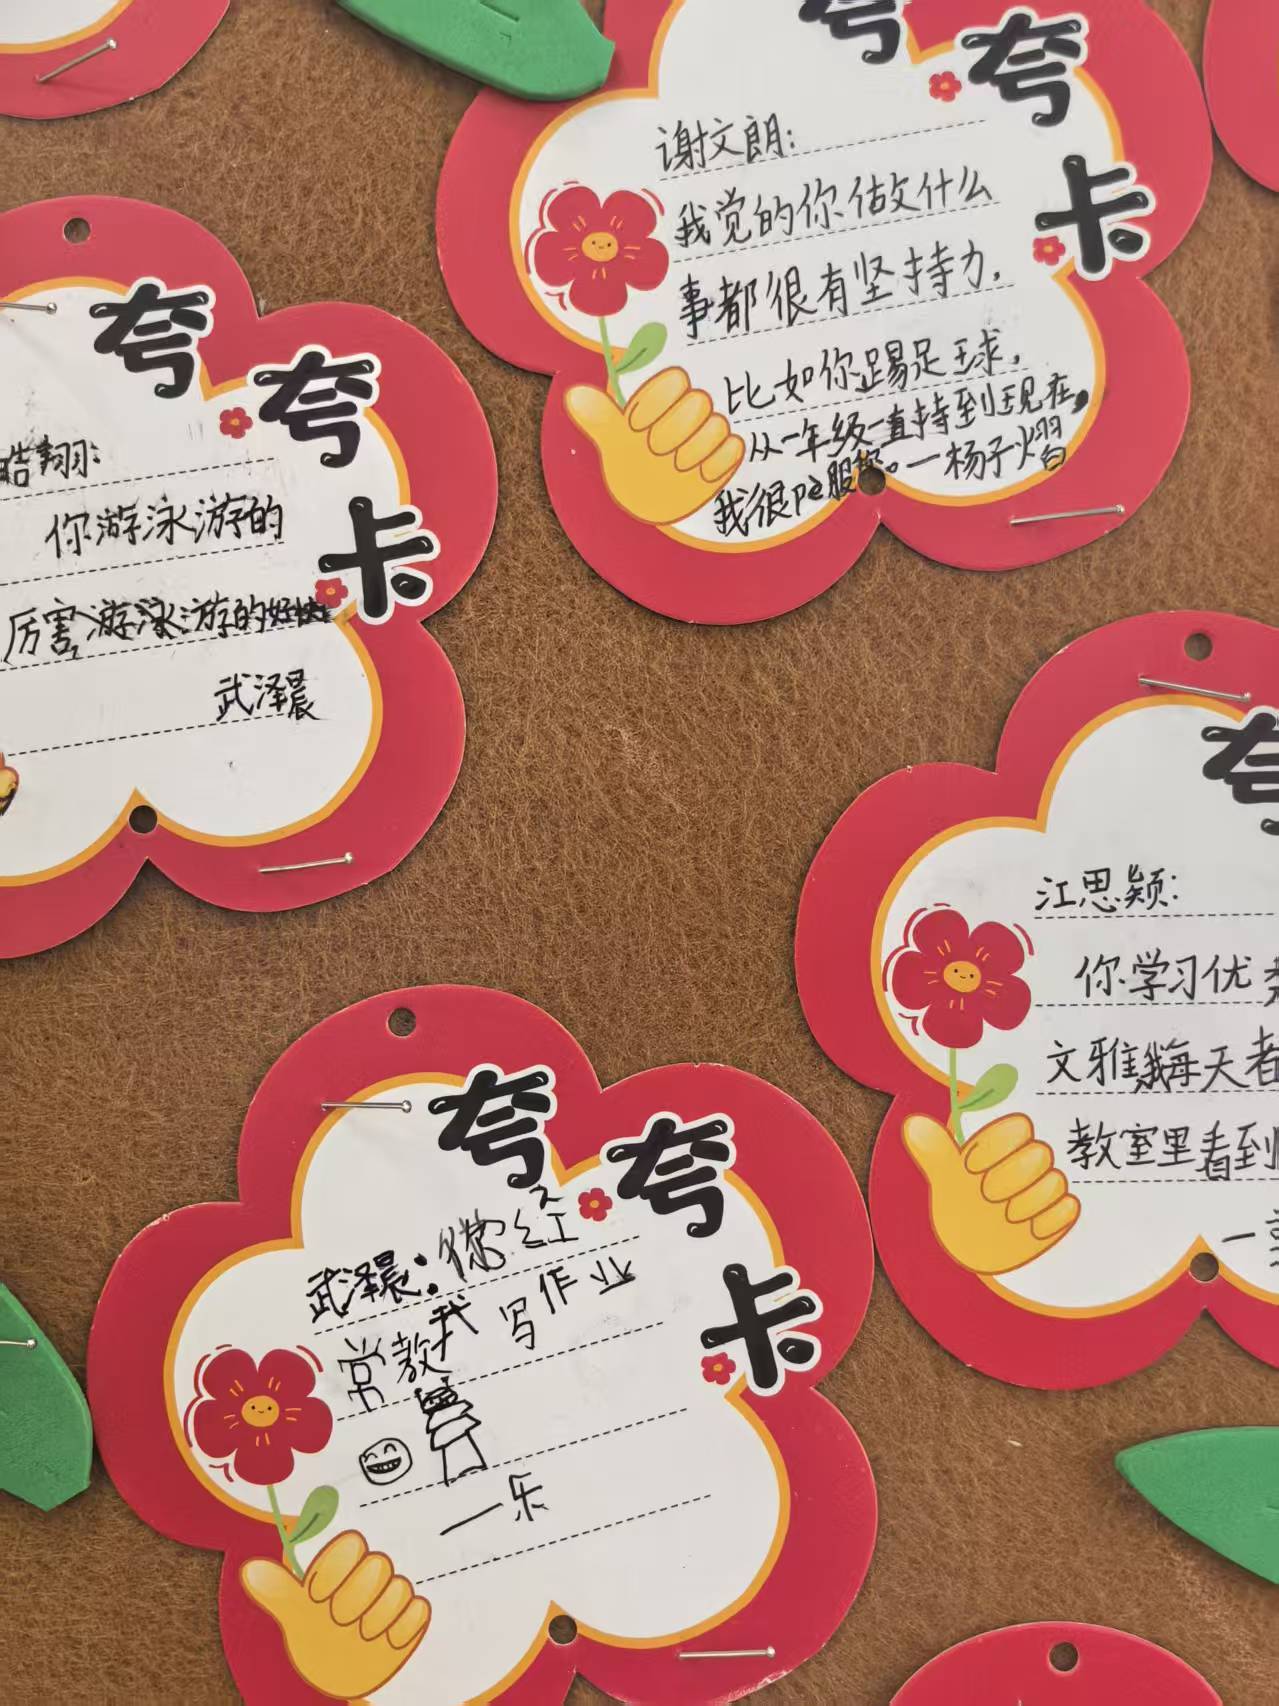 夸夸卡
谢文朗:
我觉的你做什么
事都很有坚持力,
比如你踢足球,
从一年级一直持到现在,
我很pei服你。一杨子熠
夸夸卡
皓翔:
你游泳游的
厉害,游泳游的好快
武泽晨
夸
江思颖:
你学习优
文雅,每天者
教室里看到
夸夸卡
武泽晨:你经
常教我写作业
一乐